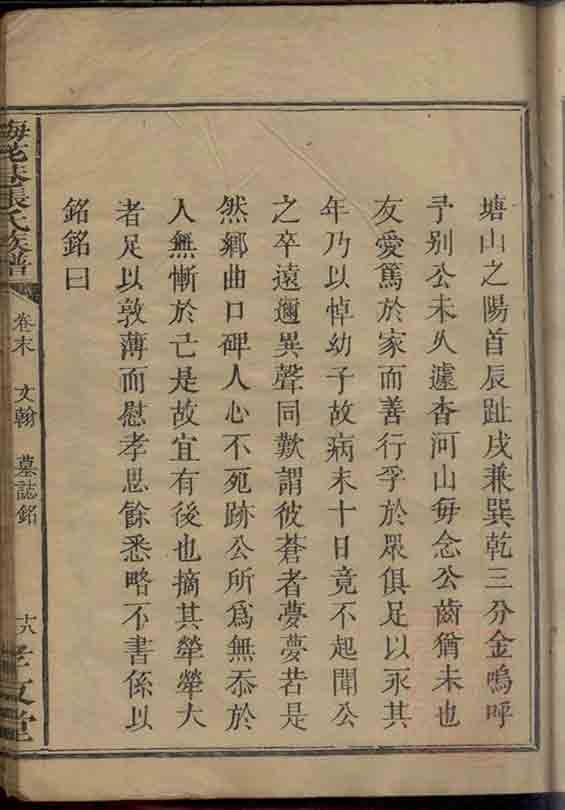 塘山之陽首辰趾戌兼巽乾三分金嗚呼
予别公未久遽杳河山每念公齒猶未也
友愛篤於家而善行孚於眾俱足以永其
年乃以悼幼子故病未十日竟不起聞公
之卒遠邇異聲同歎謂彼蒼者夢夢若是
然鄉曲口碑人心不死跡公所為無忝於
人無慚於己是故宜有後也摘其犖犖大
者足以敦薄而慰孝思餘悉略不書係以
銘銘曰
張氏族譜
卷末 文翰 墓誌銘
十八
孝友堂